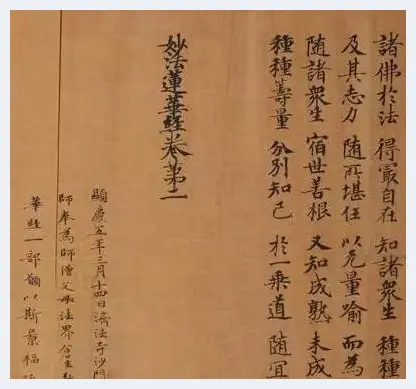 諸佛於法 得㝡自在 知諸衆生 種種
及其志力 随所堪任 以无量喻 而為
随諸衆生 宿世善根 又知成熟 未成
種種籌量 分別知已 於一乗道 随宜
妙法蓮華經卷第二
顯慶五年三月十四日濟法寺沙門
師奉為師僧父母法界倉生
華經一部願以斯景福